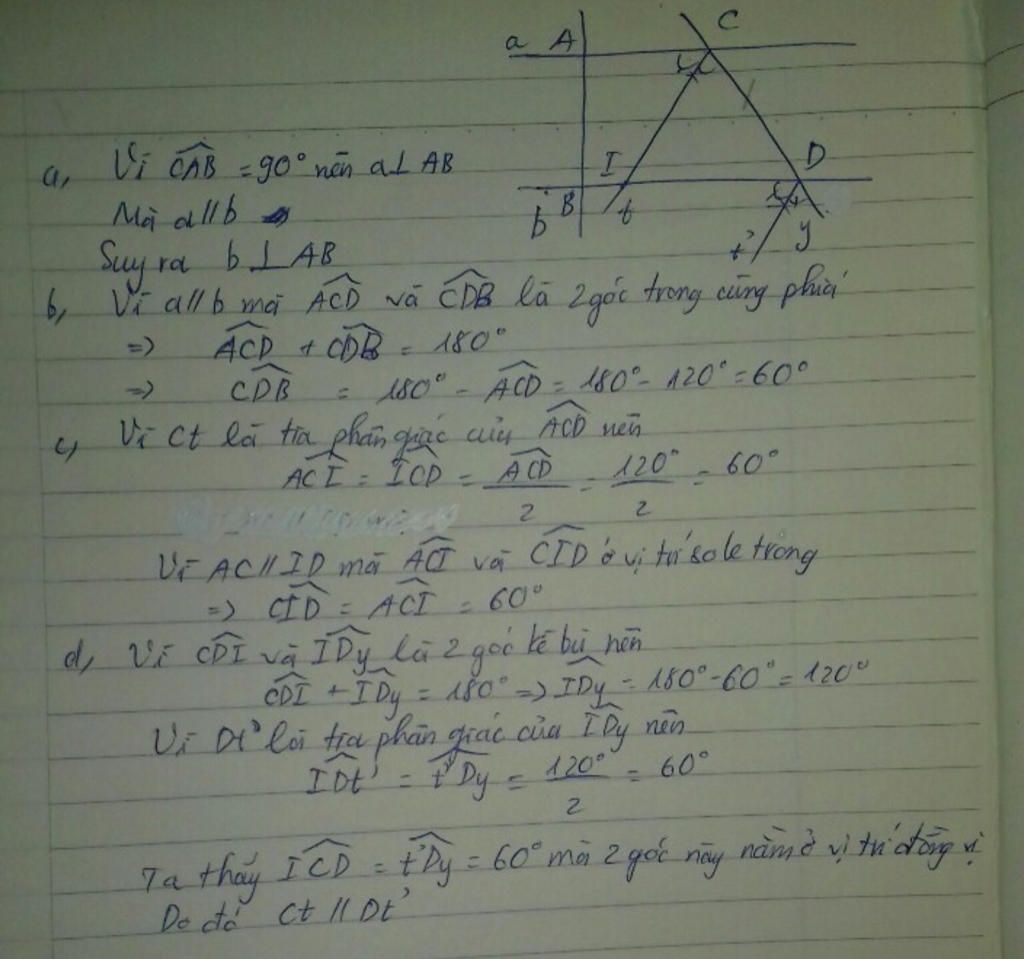 a A C
I D
b B t t' y
a, Vì \widehat{CAB} = 90° nên a⊥AB
Mà a//b
Suy ra b⊥AB
b, Vì a//b mà \widehat{ACD} và \widehat{CDB} là 2 góc trong cùng phía
=> \widehat{ACD} + \widehat{CDB} = 180°
=> \widehat{CDB} = 180° - \widehat{ACD} = 180° - 120° = 60°
c, Vì Ct là tia phân giác của \widehat{ACD} nên
\widehat{ACI} = \widehat{ICD} = \frac{\widehat{ACD}}{2} = \frac{120°}{2} = 60°
Vì AC//ID mà \widehat{ACI} và \widehat{CID} ở vị trí so le trong
=> \widehat{CID} = \widehat{ACI} = 60°
d, Vì \widehat{CDI} và \widehat{IDy} là 2 góc kề bù nên
\widehat{CDI} + \widehat{IDy} = 180° => \widehat{IDy} = 180° - 60° = 120°
Vì Dt' là tia phân giác của \widehat{IDy} nên
\widehat{IDt'} = \widehat{t'Dy} = \frac{120°}{2} = 60°
Ta thấy \widehat{ICD} = \widehat{t'Dy} = 60° mà 2 góc này nằm ở vị trí đồng vị
Do đó Ct // Dt'